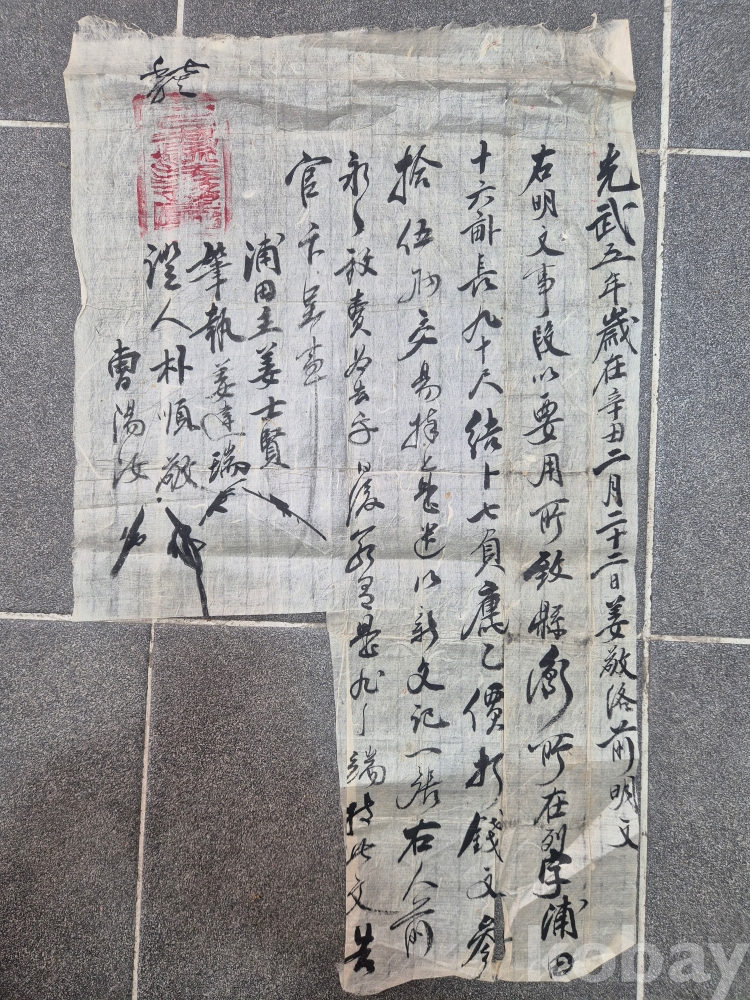 光武五年歲在辛丑二月二十二日姜敬洛前明文
右明文事段以要用所致縣 所在列字浦田
十六畝長九十尺結卜七負 價折錢文參
拾伍兩交易捧上是遣以新文記一張右人前
永永放賣爲去乎日後若有是非之端持此文告
官卞呈事
浦田主姜士賢
筆執姜達瑞
證人朴順敬
曹陽汝
kobay